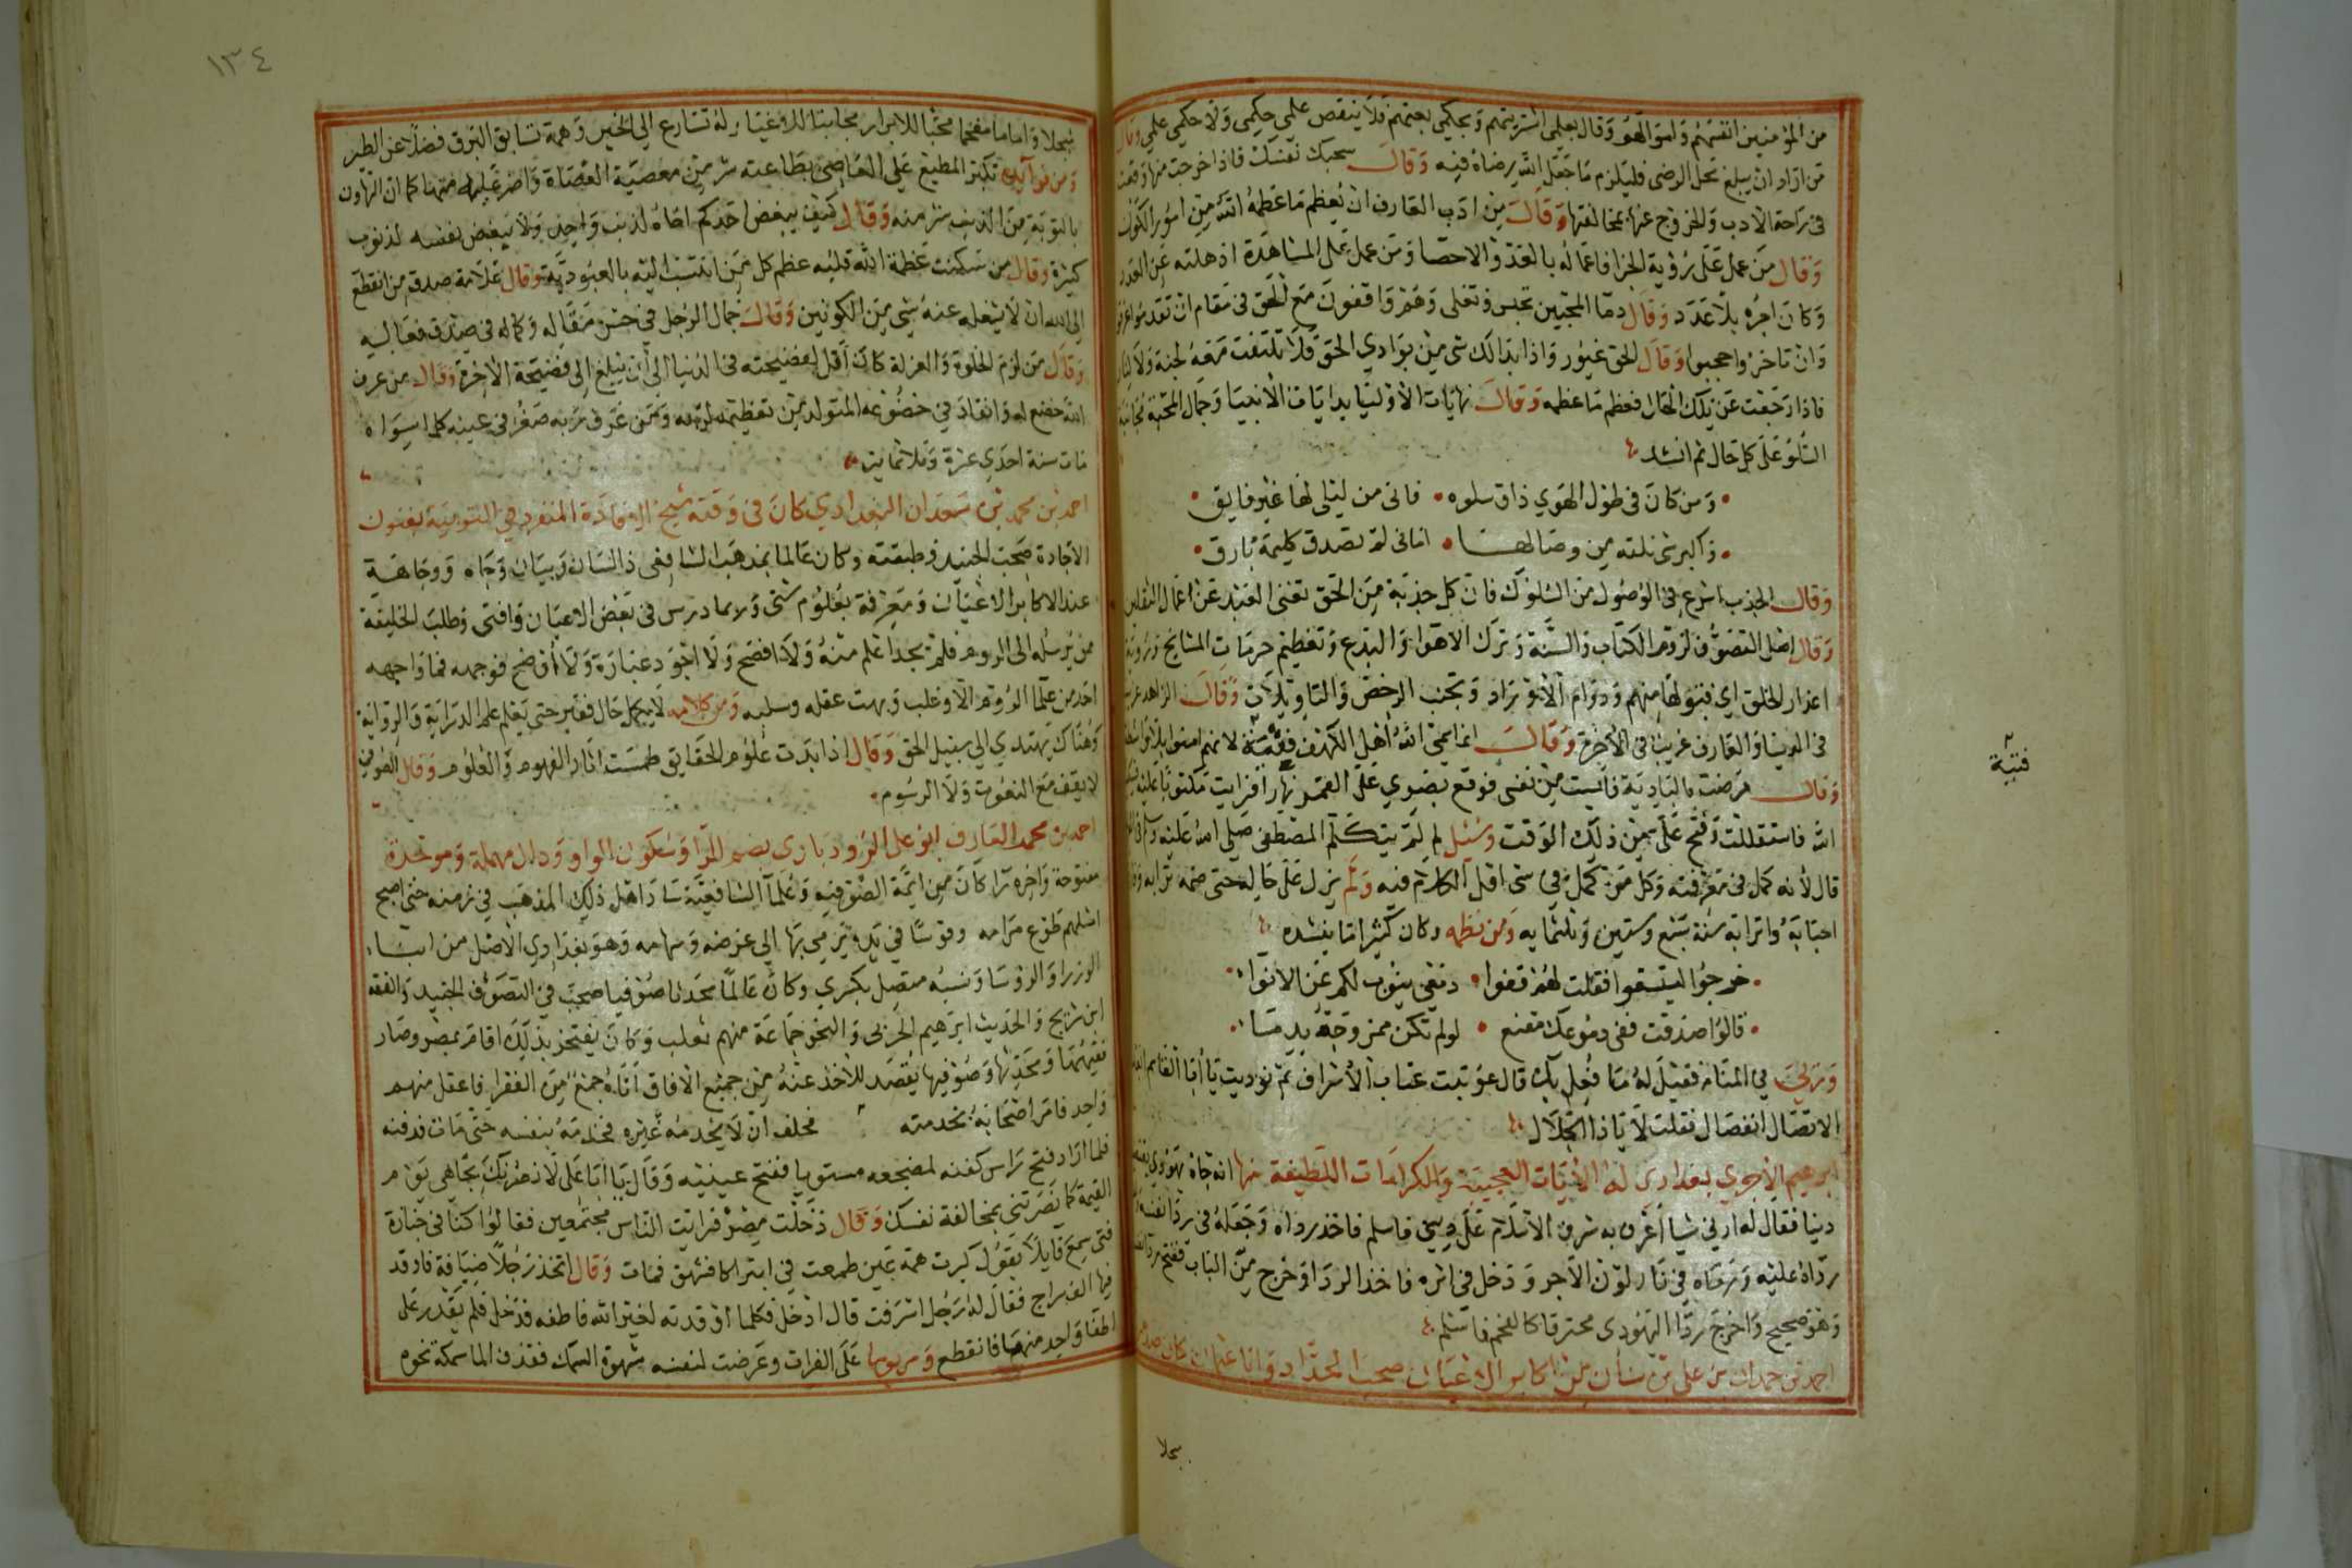 من المؤمنين انفسهم واموالهم وقال بعلمي اشتريتهم وبحكمي بعتهم فلا ينقص علمي حكمي ولا حكمي علمي وقال
من اراد ان يبلغ محل الرضى فليلزم ما جعل الله رضاه فيه وقال سجنك نفسك فاذا خرجت منها وقعت
في راحة الادب والخروج عنها بمخالفتها وقال من ادب العارف ان يعظم ما عظمه الله من امور الكون
وقال من عمل على رؤية الجزا فاعماله بالعدد والاحصا ومن عمل على المشاهدة اذهلته عن العدد
وكان اجره بلا عدد وقال دما المحبين تجيس وتغلى وهم واقفون مع الحق في مقام ان تقدموا غرقوا
وان تاخروا حجبوا وقال الحق غيور واذا بدا لك شي من بوادي الحق فلا تلتفت معه لجنة ولا لنار
فاذا رجعت عن تلك الحال فعظم ما عظمه وقال نهايات الاوليا بدايات الانبيا وجمال المحبة مجانبة
السلو على كل حال ثم انشد
ومن كان في طول الهوي ذاق سلوه فاني من ليلى لها غير ذايق
واكبر شي نلته من وصالها اماني لم تصدق كلمحة بارق
وقال الجذب اسرع في الوصول من السلوك فان كل جذبة من الحق تغني العبد عن اعمال الثقلين
وقال اصل التصوف لزوم الكتاب والسنة وترك الاهوا والبدع وتعظيم حرمات المشايخ ورؤية
اعذار الخلق اي قبولها منهم ودوام الاوراد وتجنب الرخص والتاويلات وقال الزاهد غريب
في الدنيا والعارف غريب في الاخرة وقال انما سمى الله اهل الكهف فتية لانهم امنوا بلا واسطة
وقال مرضت بالبادية فايست من نفسي فوقع بصري على القمر نهارا فرايت مكتوبا عليه
الله فاستقللت وفتح علي من ذلك الوقت وسئل لم لم يتكلم المصطفى صلى الله عليه وسلم في
قال لانه كمل في معرفته وكل من كمل في شي اقل الكلام فيه ولم يزل على حاله حتى ضمه ترابه
احبابه واترابه سنة سبع وستين وثلثمايه ومن نظمه وكان كثيرا ما ينشده
خرجوا ليستسقوا فقلت لهم قفوا دمعي ينوب لكم عن الانوا
قالوا صدقت ففي دموعك مقنع لو لم تكن ممزوجة بدما
ورئي في المنام فقيل له ما فعل بك قال عوتبت عتاب الاشراف ثم نوديت يا ابا القاسم ابعد
الاتصال انفصال فقلت لا يا ذا الجلال
ابرهيم الاجري بغدادي له الايات العجيبة والكرامات اللطيفة منها انه جاه يهودي
دينا فقال له ارني شيا اعرف به شرف الاسلام على ديني فاسلم فاخذ رداه وجعله في ردا نفسه
رداه عليه ورماه في نار لوّن الآجر ودخل في اثره فاخذ الردا وخرج من الباب ففتح
وهو صحيح واخرج ردا اليهودي محترقا كالفحم فاسلم
احمد بن حمدان بن علي بن سنان من اكابر الاعيان صحب الحداد وابا عثمان كان
فتية
بجلا
١٣٤
مبجلا واماما مفخما محبا للابرار مجانبا للاغيار له تسارع الي الخير وهمة تسابق البرق فضلا عن الطير
ومن فوآيده تكبر المطيع على العاصي بطاعته شر من معصية العصاة واضر عليه منها كما ان التهاون
بالتوبة من الذنب شر منه وقال كيف يبغض احدكم اخاه لذنب واحد ولا يبغض نفسه لذنوب
كثيرة وقال من سكنت عظمة الله قلبه عظم كل من انتسب اليه بالعبودية وقال علامة صدق من انقطع
الى الله ان لا يشغله عنه شي من الكونين وقال جمال الرجل في حسن مقاله وكماله في صدق فعاليه
وقال من لزم الخلوة والعزلة كان اقل لفضيحته في الدنيا الى ان يبلغ الى فضيحة الاخرة وقال من عرف
الله خضع له وانقاد في خضوعه المتولد من تعظيمه لربه ومن عرف ربه صغر في عينه كلما سواه
مات سنة احدي عشرة وثلاثماية
احمد بن محمد بن سعدان البغدادي كان في وقته شيخ الافادة المنفرد في التربية بفنون
الاجادة صحب الجنيد وطبقته وكان عالما بمذهب الشافعي ذا لسان وبيان وجاه ووجاهة
عند الاكابر الاعيان ومعرفة بعلوم شتى ولا سيما درس في بعض الاعيان وافتى وطلب الخليفة
من يرسله الى الروم فلم يجد اعلم منه ولا افصح ولا اجود عبارة ولا اوضح فوجهه فما واجهه
احد من علما الروم الا وغلب وبهت عقله وسلب ومن كلامه لا يكمل حال فقير حتى يعلم علم الدراية والرواية
وهناك يهتدي الي سبيل الحق وقال اذا بدت علوم الحقايق طمست اثار الفهوم والعلوم وقال الصوفي
لا يقف مع النعوت ولا الرسوم
احمد بن محمد العارف ابو علي الروذباري بضم الرا وسكون الواو ودال مهملة وموحدة
مفتوحة واخره را كان من ايمة الصوفيه وعلمآ الشافعية ساد اهل ذلك المذهب في زمنه حتى اصبح
اسلهم طوع مرامه وقوسا في يده يرمي بها الى غرضه وسهامه وهو بغدادي الاصل من ابنا
الوزرا والروسا ونسبه متصل بكسري وكان عالما محدثا صوفيا صحب في التصوف الجنيد والفقه
ابن سريج والحديث ابرهيم الحربى والنحو جماعة منهم ثعلب وكان يفتخر بذلك اقام بمصر وصار
فقيهها ومحدثها وصوفيها يقصد للاخذ عنه من جميع الافاق اتاه جمع من الفقرا فاعتل منهم
واحد فامر اصحابه بخدمته فحلف ان لا يخدمه غيره فخدمه بنفسه حتى مات فدفنه
فلما اراد فتح راس كفنه لمضجعه مستويا ففتح عينيه وقال يا ابا على لانصرنك بجاهي يوم
القيمة كما نصرتني بمخالفة نفسك وقال دخلت مصر فرايت الناس مجتمعين فقالوا كنا في جنازة
فتى سمع قايلا يقول كبرت همة عين طمعت في ان تراكا فشهق فمات وقال اتخذ رجلا ضيافة فاوقد
فيها الف سراج فقال له رجل اسرفت قال ادخل فكلما اوقدته لغير الله فاطفه فدخل فلم يقدر على
اطفا واحد منها فانقطع ومر يوما على الفرات وعرضت لنفسه شهوة السمك فقذف الما سمكة نحوه